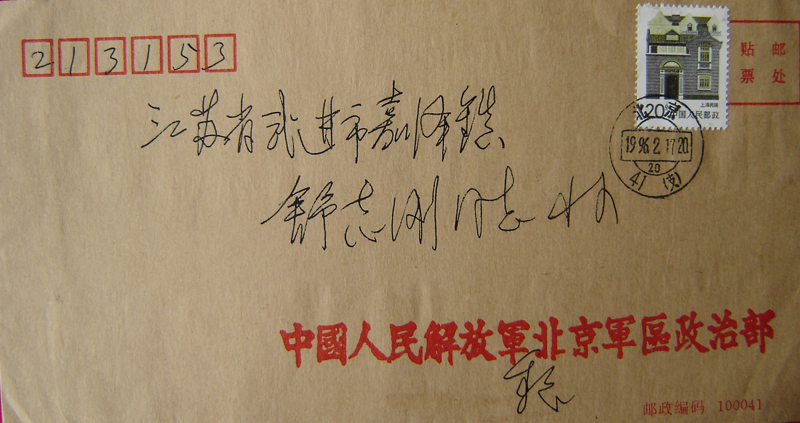 213153
贴邮
票处
上海民居
20 中国人民邮政
北京
1996.2.17.20
20
41 (支)
江苏省武进市嘉泽镇
舒志刚同志收
中國人民解放軍北京軍區政治部
邮政编码 100041